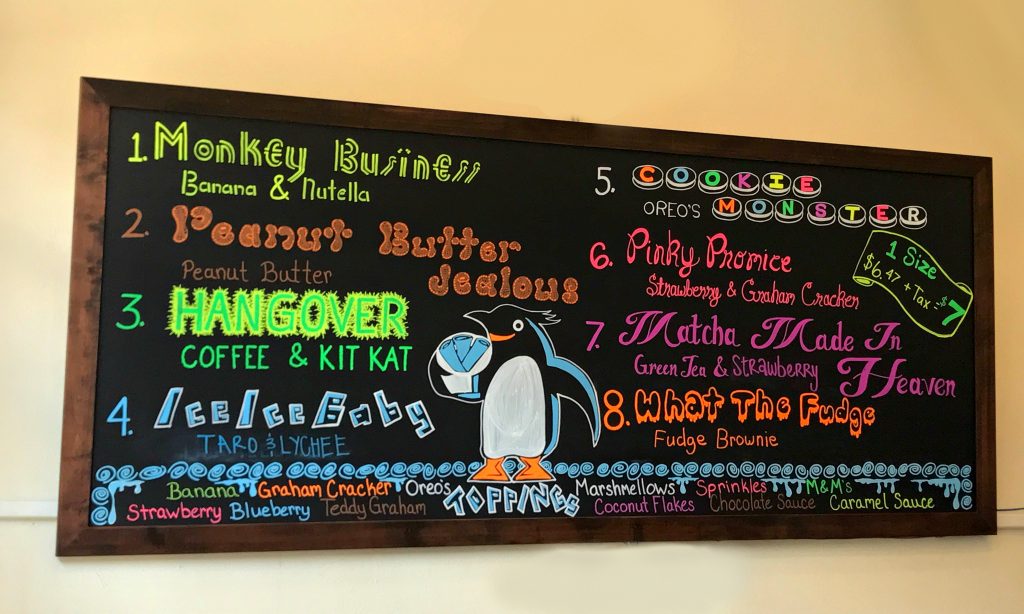 1. Monkey Business
Banana & Nutella
2. Peanut Butter
Jealous
Peanut Butter
3. HANGOVER
COFFEE & KIT KAT
4. Ice Ice Baby
TARO & LYCHEE
5. COOKIE
OREO'S MONSTER
6. Pinky Promice
Strawberry & Graham Cracker
7. Matcha Made In
Heaven
Green Tea & Strawberry
8. What The Fudge
Fudge Brownie
1 Size
$6.47 + Tax = $7
TOPPINGS
Banana Graham Cracker Oreo's Marshmellows Sprinkles M&M's
Strawberry Blueberry Teddy Graham Coconut Flakes Chocolate Sauce Caramel Sauce